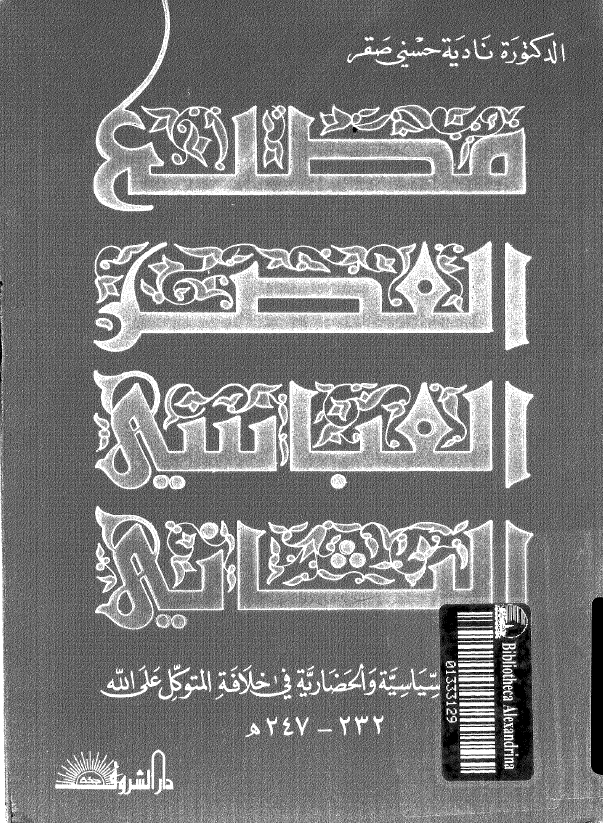 الدكتورة نادية حسني صقر
مطلع
العصر
العباسي
الثاني
السِّيَاسِيَّة وَالحَضَارِيَّة في خلَافَةِ المتوكّل عَلَى الله
٢٣٢ - ٢٤٧ هـ
دار الشروق
جدة
Bibliotheca Alexandrina
01333129